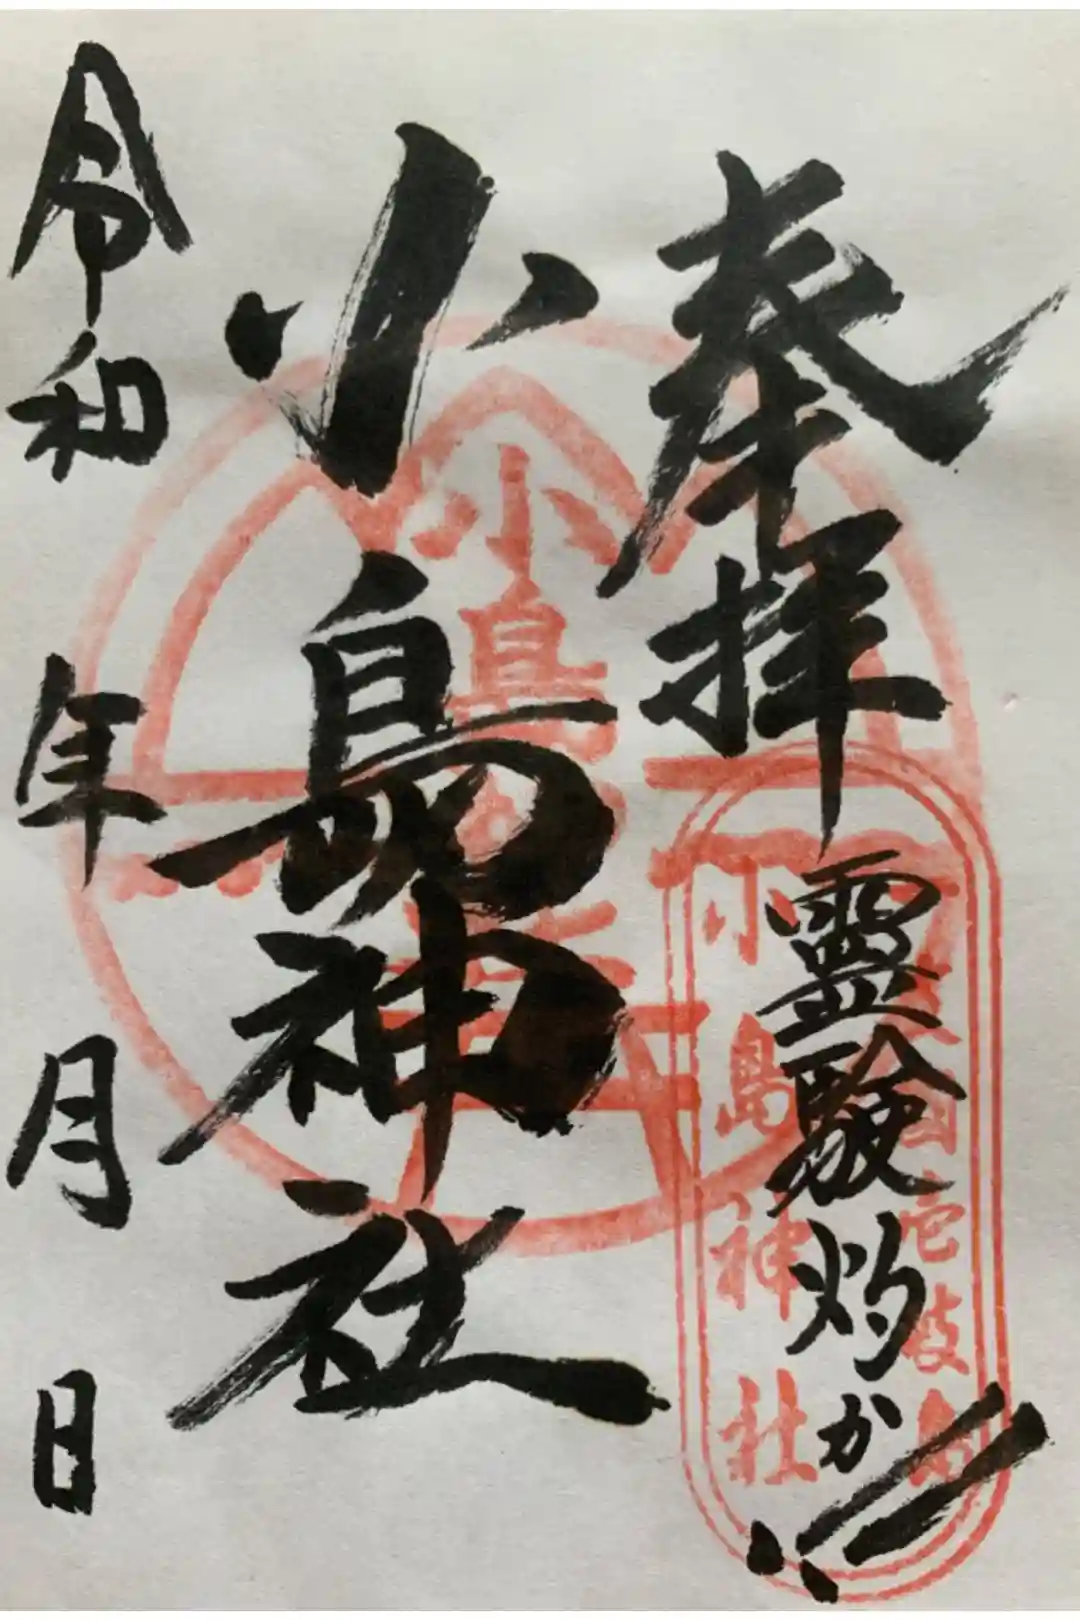 奉拝
霊験灼か
小島神社
令和 年 月 日
小島神社
小島神社